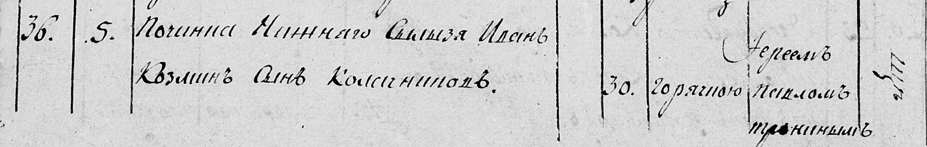 36. 5. Починка Нижнаго Сылыза Иванъ
Козминъ Сынъ Колесниковъ.
30. Горячкою
Іереемъ
Павломъ
Трониным